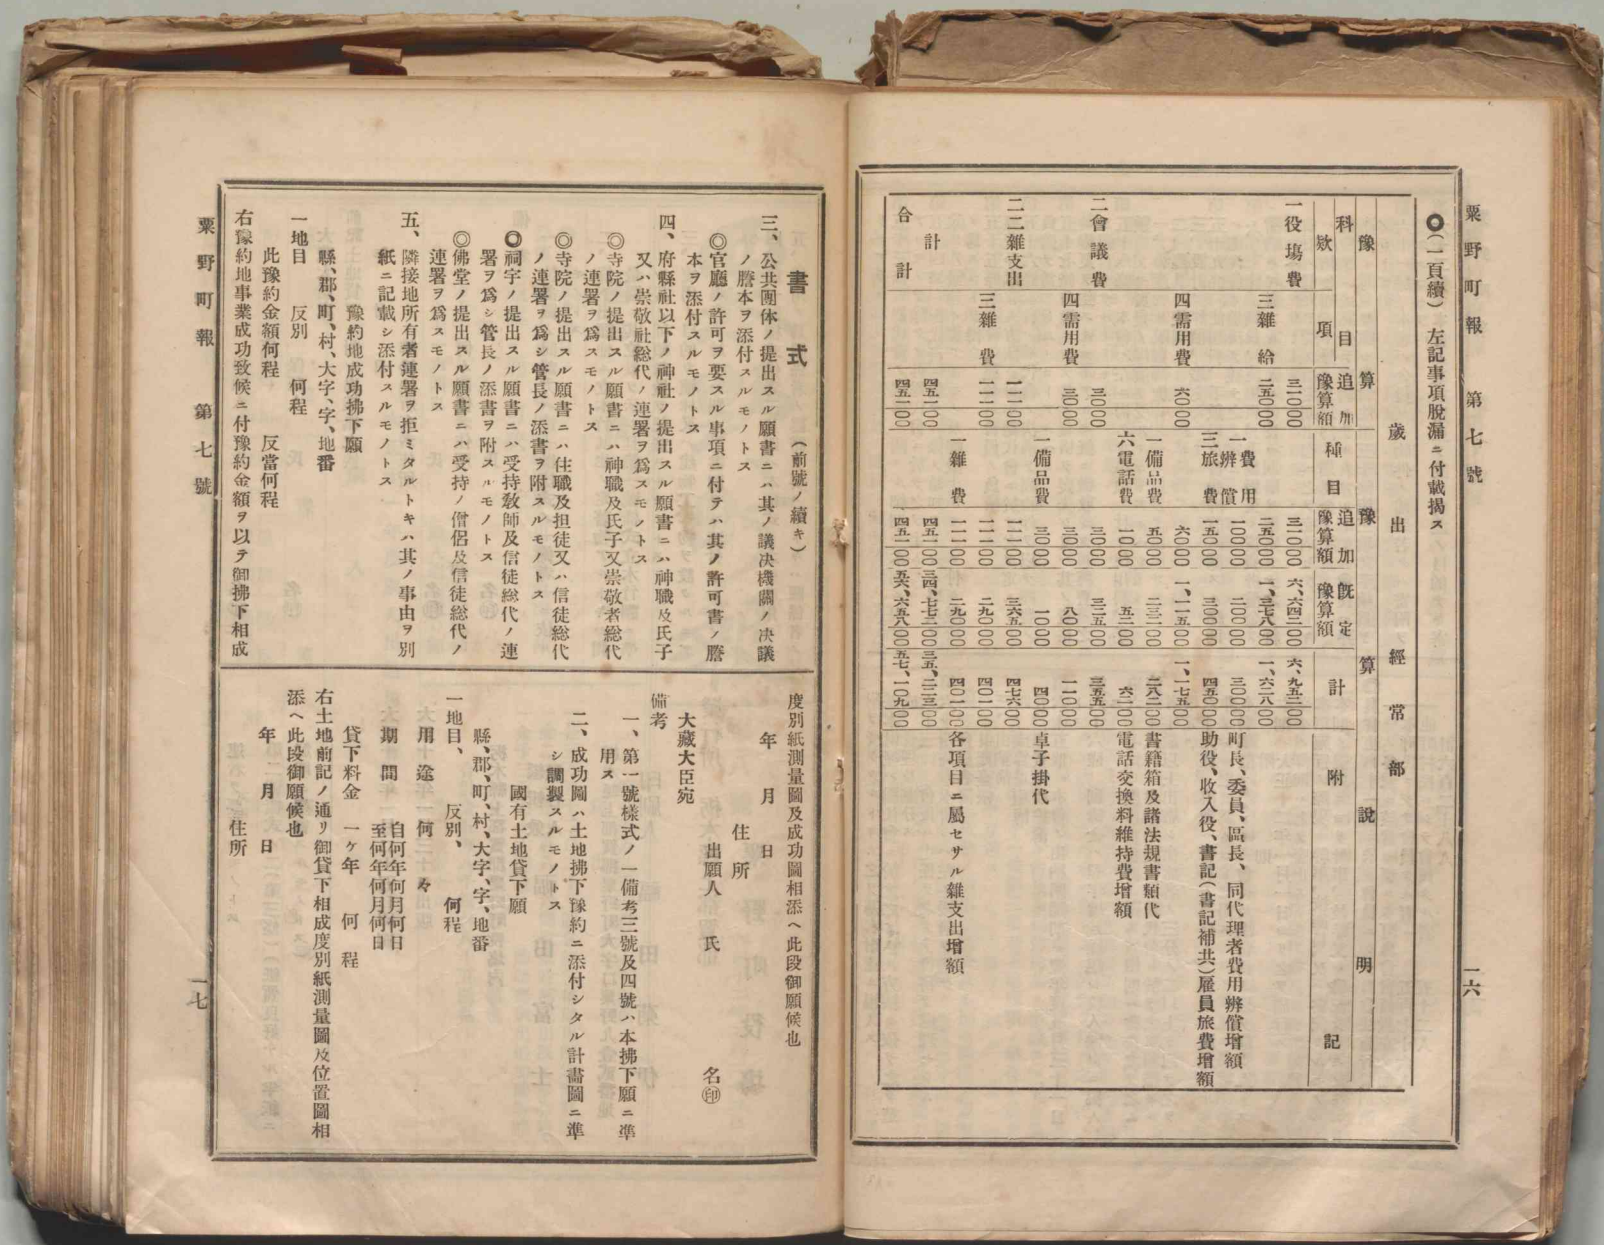 粟野町報　第七號
一六
◎(一頁續)　左記事項脫漏ニ付載揭ス
歲出經常部
豫算　豫算說明
科目　追加豫算額　種目　追加豫算額　旣定豫算額　計　附記
欵　項
一役塲費　三一〇〇〇　三一〇〇〇　六、六四二〇〇　六、九五二〇〇
三雜給　二五〇〇〇　二五〇〇〇　一、三七八〇〇　一、六二八〇〇
一費用辨償　一〇〇〇〇　二〇〇〇〇　三〇〇〇〇　町長、委員、區長、同代理者費用辨償增額
三旅費　一五〇〇〇　三〇〇〇〇　四五〇〇〇　助役、收入役、書記(書記補共)雇員旅費增額
四需用費　六〇〇〇　六〇〇〇　一、一一五〇〇　一、一七五〇〇
一備品費　五〇〇〇　二三二〇〇　二八二〇〇　書籍箱及諸法規書類代
六電話費　一〇〇〇　五二〇〇　六二〇〇　電話交換料維持費增額
二會議費　三〇〇〇　三〇〇〇　三二五〇〇　三五五〇〇
四需用費　三〇〇〇　三〇〇〇　八〇〇〇　一一〇〇〇
一備品費　三〇〇〇　一〇〇〇　四〇〇〇　卓子掛代
二二雜支出　一一一〇〇　一一一〇〇　三六五〇〇　四七六〇〇
三雜費　一一一〇〇　一一一〇〇　二九〇〇〇　四〇一〇〇
一雜費　一一一〇〇　二九〇〇〇　四〇一〇〇　各項目ニ屬セサル雜支出增額
計　四五一〇〇　四五一〇〇　三四、七七二〇〇　三五、二二三〇〇
合計　四五一〇〇　四五一〇〇　五六、六五八〇〇　五七、一〇九〇〇
書式　(前號ノ續キ)
三、公共團体ノ提出スル願書ニハ其ノ議決機關ノ決議
ノ謄本ヲ添付スルモノトス
◎官廳ノ許可ヲ要スル事項ニ付テハ其ノ許可書ノ謄
本ヲ添付スルモノトス
四、府縣社以下ノ神社ノ提出スル願書ニハ神職及氏子
又ハ崇敬社総代ノ連署ヲ爲スモノトス
◎寺院ノ提出スル願書ニハ神職及氏子又崇敬者総代
ノ連署ヲ爲スモノトス
◎寺院ノ提出スル願書ニハ住職及担徒又ハ信徒総代
ノ連署ヲ爲シ管長ノ添書ヲ附スルモノトス
◎祠宇ノ提出スル願書ニハ受持敎師及信徒総代ノ連
署ヲ爲シ管長ノ添書ヲ附スルモノトス
◎佛堂ノ提出スル願書ニハ受持ノ僧侶及信徒総代ノ
連署ヲ爲スモノトス
五、隣接地所有者連署ヲ拒ミタルトキハ其ノ事由ヲ別
紙ニ記載シ添付スルモノトス
豫約地成功拂下願
縣、郡、町、村、大字、字、地番
一地目　反別　何程
此豫約金額何程　反當何程
右豫約地事業成功致候ニ付豫約金額ヲ以テ御拂下相成
度別紙測量圖及成功圖相添ヘ此段御願候也
年　月　日
住所
出願人　氏　名㊞
大藏大臣宛
備考
一、第一號樣式ノ一備考三號及四號ハ本拂下願ニ準
用ス
二、成功圖ハ土地拂下豫約ニ添付シタル計畵圖ニ準
シ調製スルモノトス
國有土地貸下願
縣、郡、町、村、大字、字、地番
一地目、　反別、　何程
用途　何々
期間　自何年何月何日
至何年何月何日
貸下料金　一ケ年　何程
右土地前記ノ通リ御貸下相成度別紙測量圖及位置圖相
添ヘ此段御願候也
年　月　日
住所
粟野町報　第七號
一七